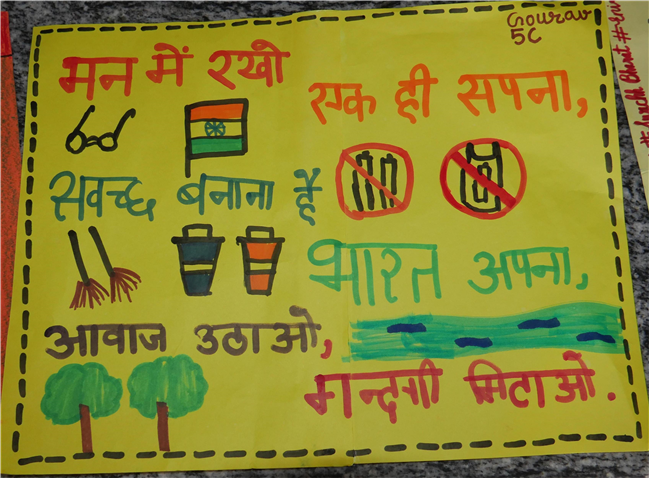 Gourav
5C
मन में रखो
एक ही सपना,
सवच्छ बनाना है
भारत अपना,
आवाज उठाओ,
गन्दगी मिटाओ.